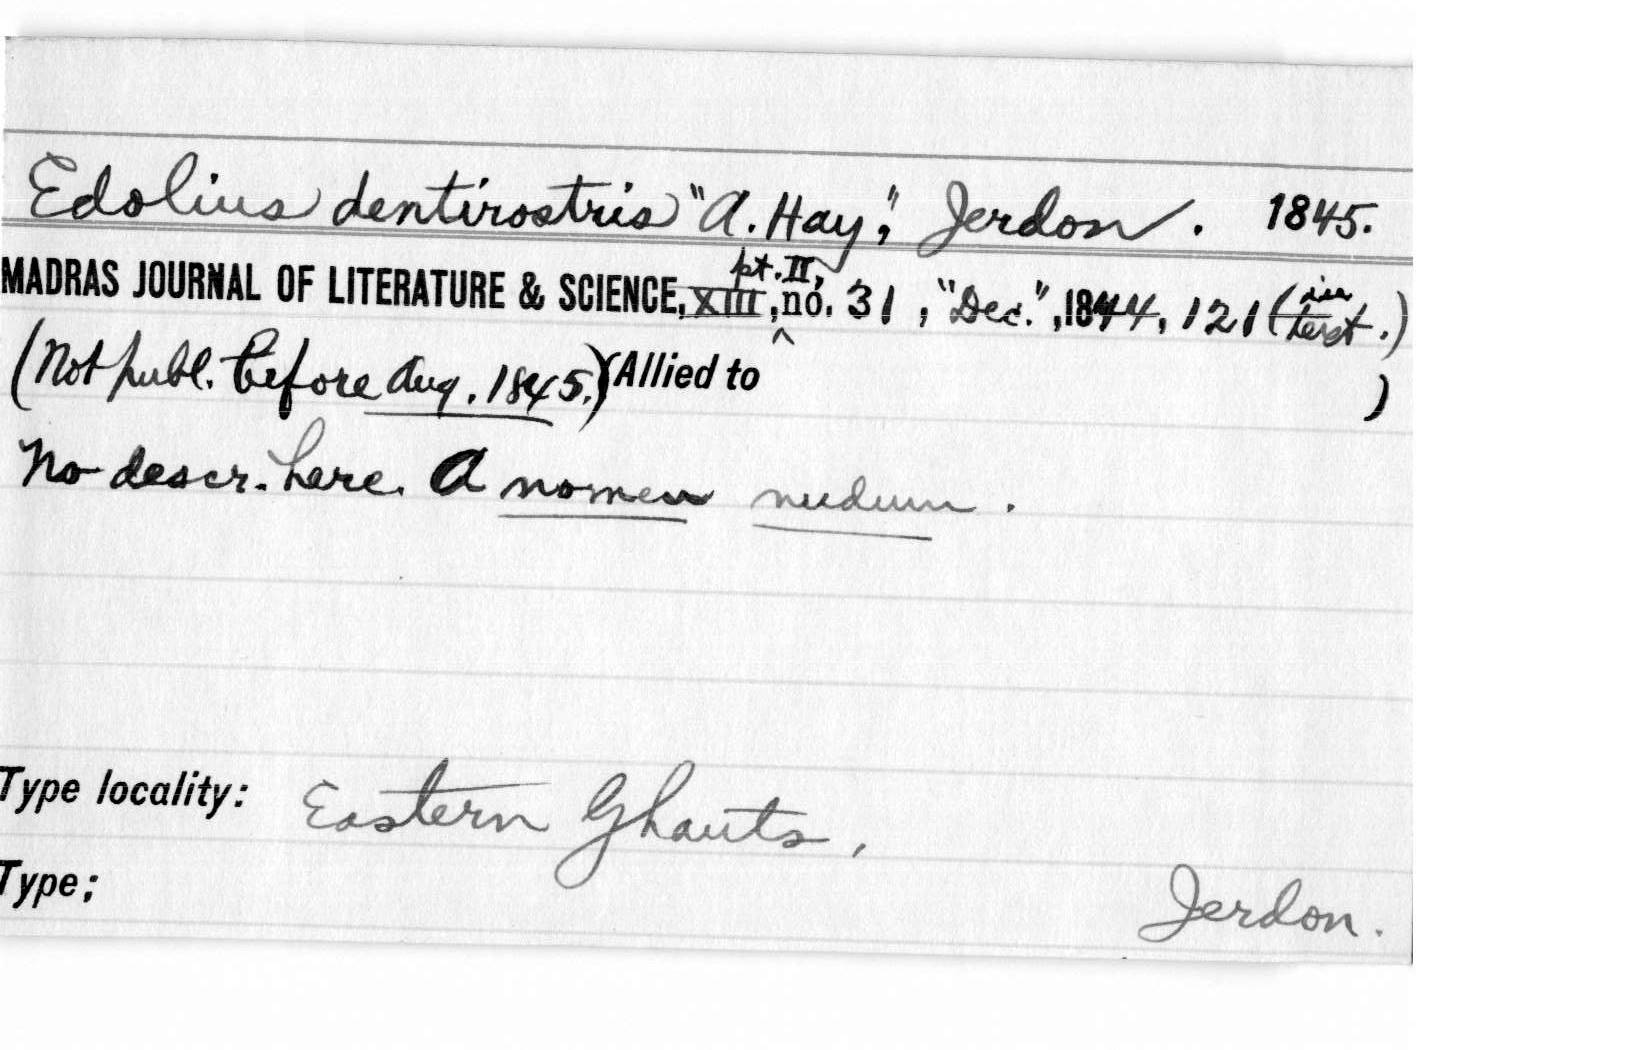 Edolius dentirostris "A. Hay", Jerdon. 1845.
MADRAS JOURNAL OF LITERATURE & SCIENCE, XIII, pt. II, no. 31, "Dec.", 1844, 121 (in text.)
(Not publ. before Aug. 1845.) (Allied to )
No descr. here. A nomen nudum.
Type locality: Eastern Ghauts,
Type; Jerdon.